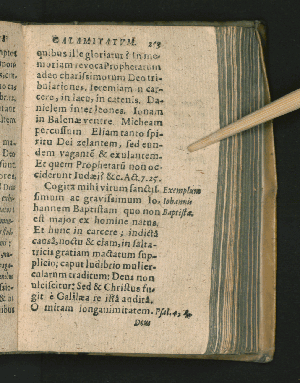 CALAMITATUM. 213
quibus ille gloriatur? In me-
moriam revoca Prophetarum
adeo charissimotum Deo tri-
bulationes, Ieremiam in car-
cere, in lacu, in catenis. Da-
nielem inter leones. Ionam
in Balenæ ventre. Micheam
percussum Eliam tanto spi-
ritu Dei zelantem, sed eun-
dem vagantē & exulantem.
Et quem Prophetarū non oc-
ciderunt Iudæi? &c. Act. 7.
Cogita mihi virum sanctis- Exemplum
simum ac gravissimum Io- Iohannis
hannem Baptistam quo non Baptistæ.
est major ex homine natus.
Et hunc in carcere; indictâ
causâ, noctu & clam, in salta-
tricis gratiam mactatum sup-
plicio; caput ludibrio mulier-
cularum traditum: Deus non
ulciscitur; Sed & Christus fu-
git è Galilæa re istâ auditâ.
O miram longanimitatem. Psal.
Deus